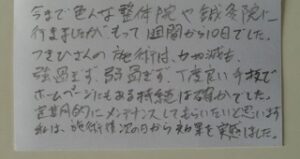 今まで色んな整体院や鍼灸院に
行きましたがもって1週間から10日でした。
つきひさんの施術は、力加減も
強過ぎず、弱過ぎず、丁度良い手技で
ホームページにもある持続は確かでした。
定期的にメンテナンスしてもらいたいと思います
私は、施行後次の日から効果を実感しました。